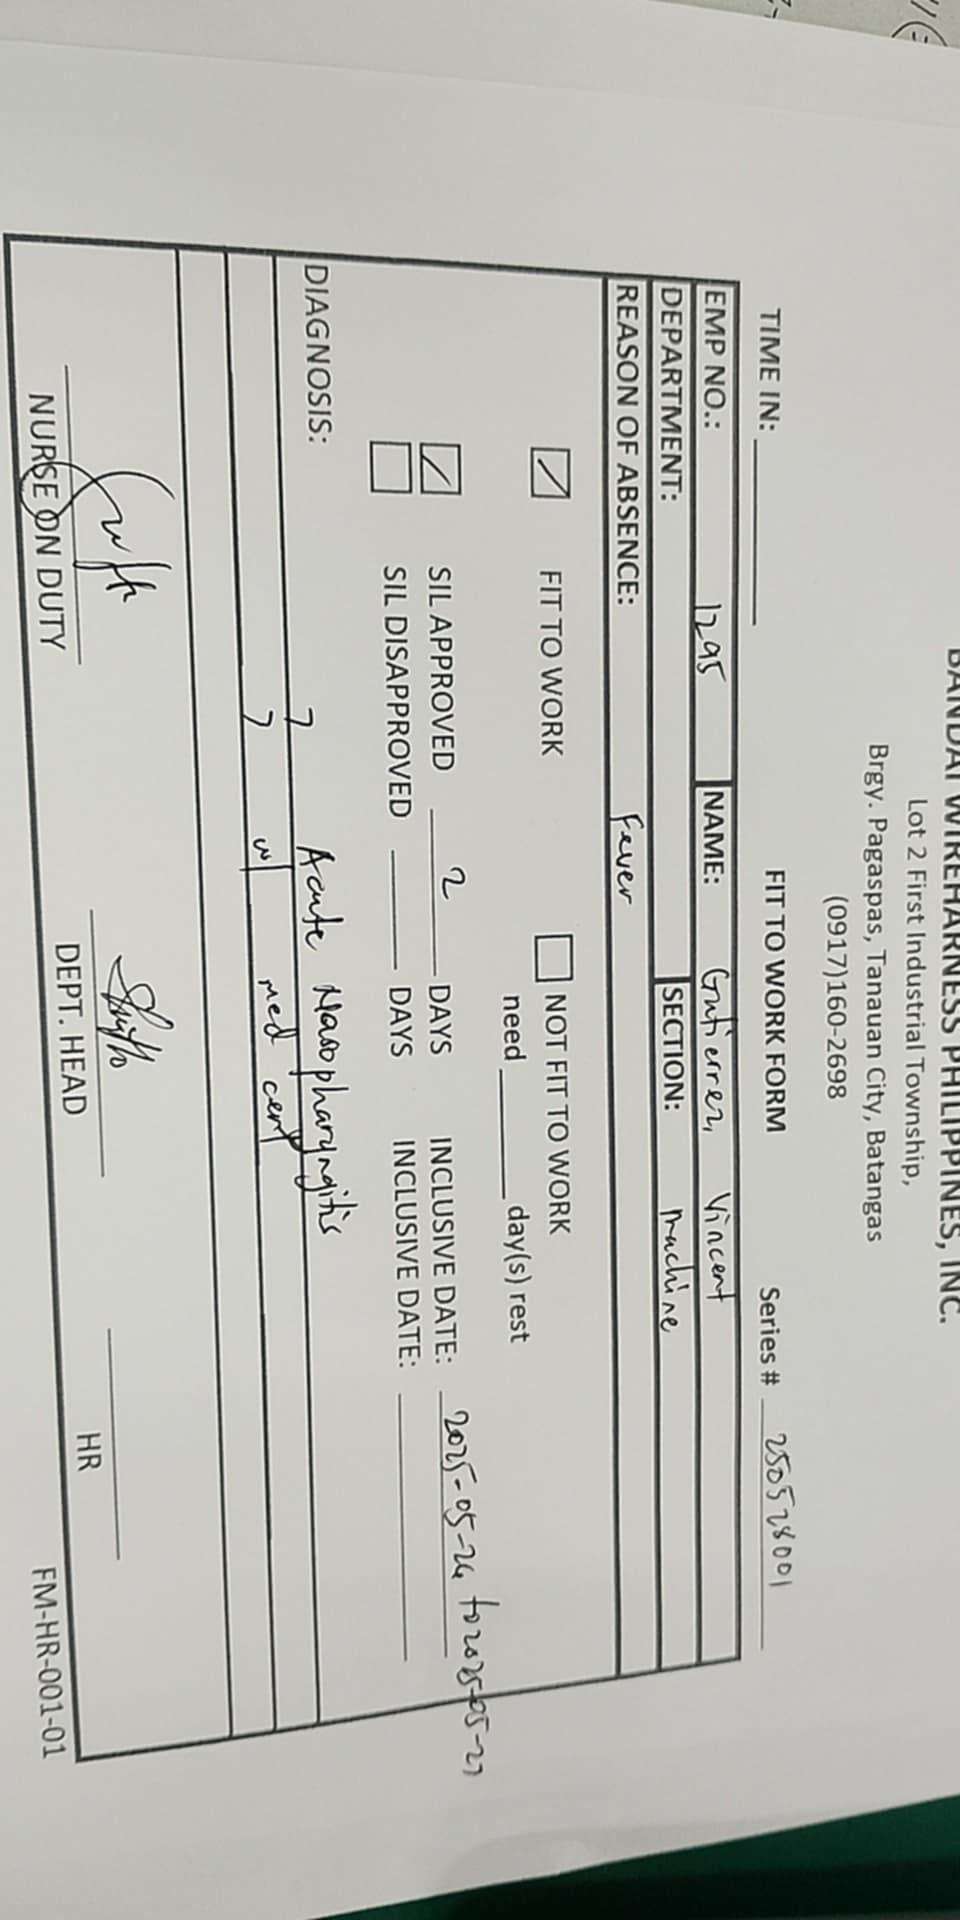 BANDAI WIREHARNESS PHILIPPINES, INC.
Lot 2 First Industrial Township,
Brgy. Pagaspas, Tanauan City, Batangas
(0917)160-2698
FIT TO WORK FORM
TIME IN: Series # 250528001
EMP NO.: 1295 NAME: Gutierrez, Vincent
DEPARTMENT: SECTION: Machine
REASON OF ABSENCE: Fever
FIT TO WORK NOT FIT TO WORK
need ______ day(s) rest
SIL APPROVED 2 DAYS INCLUSIVE DATE: 2025-05-26 to 2025-05-27
SIL DISAPPROVED DAYS INCLUSIVE DATE:
DIAGNOSIS: Acute Nasopharyngitis
w/ med cert
NURSE ON DUTY DEPT. HEAD HR
FM-HR-001-01